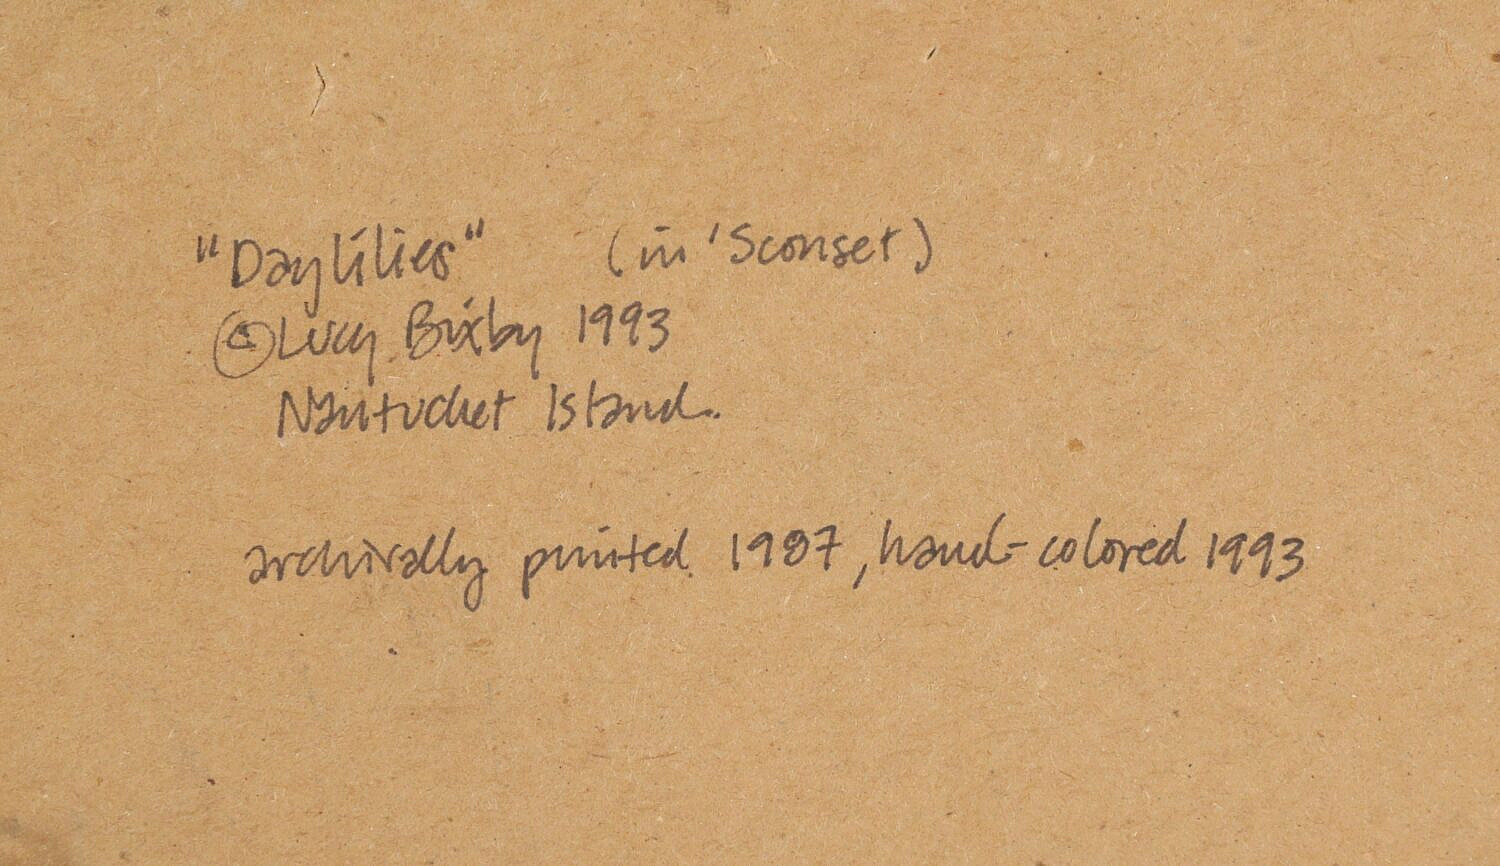 "Daylilies" (in 'Sconset)
© Lucy Bixby 1993
Nantucket Island.
archivally printed 1987, hand-colored 1993